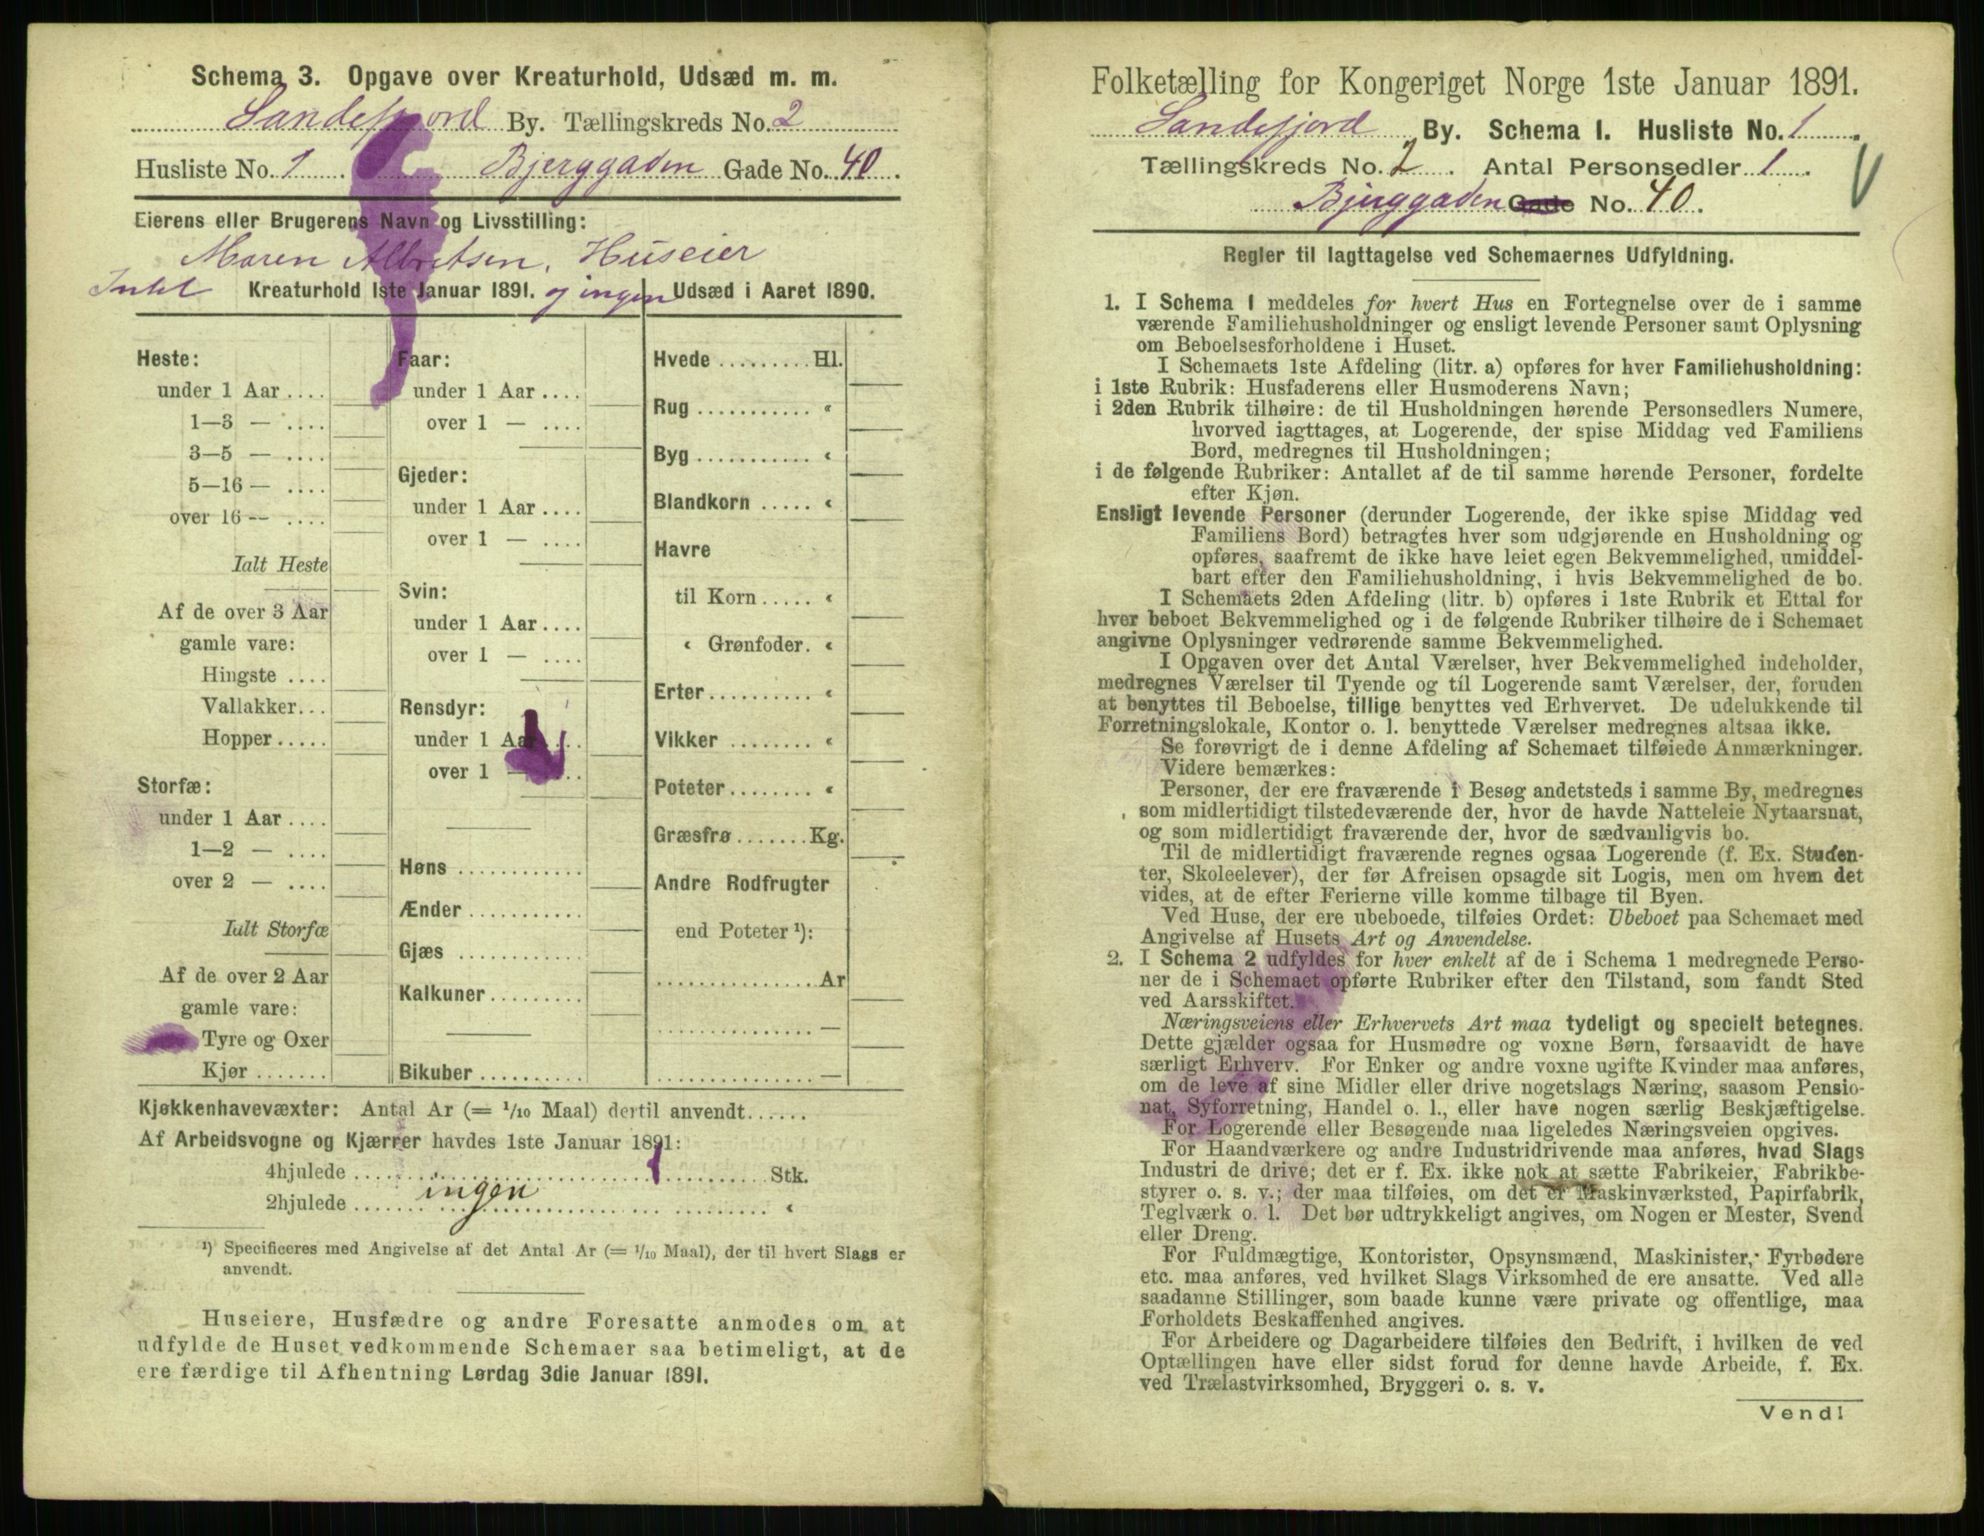 Schema 3. Opgave over Kreaturhold, Udsæd m. m.
Sandefjord By. Tællingskreds No. 2
Husliste No. 1. Bjerggaden Gade No. 40.
Eierens eller Brugerens Navn og Livsstilling:
Maren Albretsen, Huseier
Intet Kreaturhold 1ste Januar 1891. og ingen Udsæd i Aaret 1890.
Heste:
under 1 Aar....
1—3 — ....
3—5 — ....
5—16 — ....
over 16 — ....
Ialt Heste
Af de over 3 Aar
gamle vare:
Hingste ....
Vallakker...
Hopper.....
Storfæ:
under 1 Aar....
1—2 — ....
over 2 — ....
Ialt Storfæ
Af de over 2 Aar
gamle vare:
Tyre og Oxer
Kjør.......
Faar:
under 1 Aar....
over 1 — ....
Gjeder:
under 1 Aar....
over 1 — ....
Svin:
under 1 Aar....
over 1 — ....
Rensdyr:
under 1 Aar....
over 1 — ....
Høns............
Ænder...........
Gjæs............
Kalkuner.........
Bikuber..........
Hvede.........Hl.
Rug........... «
Byg........... «
Blandkorn..... «
Havre
til Korn..... «
« Grønfoder. «
Erter......... «
Vikker........ «
Poteter....... «
Græsfrø.......Kg.
Andre Rodfrugter
end Poteter ¹):
...............Ar
...............—
...............—
Kjøkkenhavevæxter: Antal Ar (= 1/10 Maal) dertil anvendt......
Af Arbeidsvogne og Kjærrer havdes 1ste Januar 1891:
4hjulede ........................ Stk.
2hjulede ...... ingen ........... «
¹) Specificeres med Angivelse af det Antal Ar (= 1/10 Maal), der til hvert Slags er
anvendt.
Huseiere, Husfædre og andre Foresatte anmodes om at
udfylde de Huset vedkommende Schemaer saa betimeligt, at de
ere færdige til Afhentning Lørdag 3die Januar 1891.
Folketælling for Kongeriget Norge 1ste Januar 1891.
Sandefjord By. Schema I. Husliste No. 1.
Tællingskreds No. 2. Antal Personsedler 1.
Bjerggaden Gade No. 40.
Regler til Iagttagelse ved Schemaernes Udfyldning.
1. I Schema 1 meddeles for hvert Hus en Fortegnelse over de i samme
værende Familiehusholdninger og ensligt levende Personer samt Oplysning
om Beboelsesforholdene i Huset.
I Schemaets 1ste Afdeling (litr. a) opføres for hver Familiehusholdning:
i 1ste Rubrik: Husfaderens eller Husmoderens Navn;
i 2den Rubrik tilhøire: de til Husholdningen hørende Personsedlers Numere,
hvorved iagttages, at Logerende, der spise Middag ved Familiens
Bord, medregnes til Husholdningen;
i de følgende Rubriker: Antallet af de til samme hørende Personer, fordelte
efter Kjøn.
Ensligt levende Personer (derunder Logerende, der ikke spise Middag ved
Familiens Bord) betragtes hver som udgjørende en Husholdning og
opføres, saafremt de ikke have leiet egen Bekvemmelighed, umiddel-
bart efter den Familiehusholdning, i hvis Bekvemmelighed de bo.
I Schemaets 2den Afdeling (litr. b) opføres i 1ste Rubrik et Ettal for
hver beboet Bekvemmelighed og i de følgende Rubriker tilhøire de i Schemaet
angivne Oplysninger vedrørende samme Bekvemmelighed.
I Opgaven over det Antal Værelser, hver Bekvemmelighed indeholder,
medregnes Værelser til Tyende og til Logerende samt Værelser, der, foruden
at benyttes til Beboelse, tillige benyttes ved Erhvervet. De udelukkende til
Forretningslokale, Kontor o. l. benyttede Værelser medregnes altsaa ikke.
Se forøvrigt de i denne Afdeling af Schemaet tilføiede Anmærkninger.
Videre bemærkes:
Personer, der ere fraværende i Besøg andetsteds i samme By, medregnes
som midlertidigt tilstedeværende der, hvor de havde Natteleie Nytaarsnat,
og som midlertidigt fraværende der, hvor de sædvanligvis bo.
Til de midlertidigt fraværende regnes ogsaa Logerende (f. Ex. Studen-
ter, Skoleelever), der før Afreisen opsagde sit Logis, men om hvem det
vides, at de efter Ferierne ville komme tilbage til Byen.
Ved Huse, der ere ubeboede, tilføies Ordet: Ubeboet paa Schemaet med
Angivelse af Husets Art og Anvendelse.
2. I Schema 2 udfyldes for hver enkelt af de i Schema 1 medregnede Perso-
ner de i Schemaet opførte Rubriker efter den Tilstand, som fandt Sted
ved Aarsskiftet.
Næringsveiens eller Erhvervets Art maa tydeligt og specielt betegnes.
Dette gjælder ogsaa for Husmødre og voxne Børn, forsaavidt de have
særligt Erhverv. For Enker og andre voxne ugifte Kvinder maa anføres,
om de leve af sine Midler eller drive nogetslags Næring, saasom Pensio-
nat, Syforretning, Handel o. l., eller have nogen særlig Beskjæftigelse.
For Logerende eller Besøgende maa ligeledes Næringsveien opgives.
For Haandværkere og andre Industridrivende maa anføres, hvad Slags
Industri de drive; det er f. Ex. ikke nok at sætte Fabrikeier, Fabrikbe-
styrer o. s. v.; der maa tilføies, om det er Maskinværksted, Papirfabrik,
Teglværk o. l. Det bør udtrykkeligt angives, om Nogen er Mester, Svend
eller Dreng.
For Fuldmægtige, Kontorister, Opsynsmænd, Maskinister, Fyrbødere
etc. maa anføres, ved hvilket Slags Virksomhed de ere ansatte. Ved alle
saadanne Stillinger, som baade kunne være private og offentlige, maa
Forholdets Beskaffenhed angives.
For Arbeidere og Dagarbeidere tilføies den Bedrift, i hvilken de ved
Optællingen have eller sidst forud for denne havde Arbeide, f. Ex.
ved Trælastvirksomhed, Bryggeri o. s. v.
Vend!